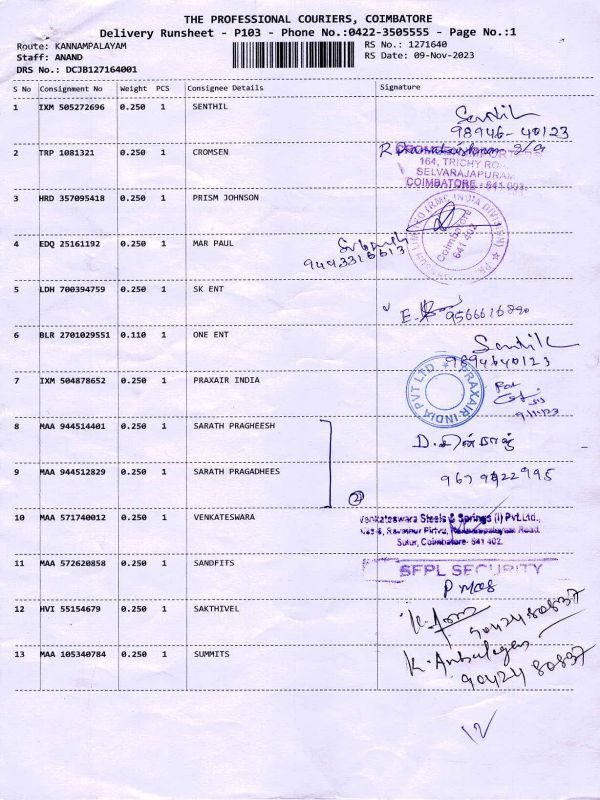 THE PROFESSIONAL COURIERS, COIMBATORE
Delivery Runsheet - P103 - Phone No.:0422-3505555 - Page No.:1
Route: KANNAMPALAYAM
RS No.: 1271640
Staff: ANAND
RS Date: 09-Nov-2023
DRS No.: DCJB127164001
S No Consignment No Weight PCS Consignee Details Signature
1 IXM 505272696 0.250 1 SENTHIL
98946-40123
2 TRP 1081321 0.250 1 CROMSEN
164, TRICHY
SELVARAJAPURAM
COIMBATORE - 641 003.
3 HRD 357095418 0.250 1 PRISM JOHNSON
(RMC INDIA DIVISION)
Coimbatore
641 402
4 EDQ 25161192 0.250 1 MAR PAUL
5 LDH 700394759 0.250 1 SK ENT
6 BLR 2701029551 0.110 1 ONE ENT
9894640123
7 IXM 504878652 0.250 1 PRAXAIR INDIA
PRAXAIR INDIA PVT LTD.
9/11/23
8 MAA 944514401 0.250 1 SARATH PRAGHEESH
9 MAA 944512829 0.250 1 SARATH PRAGADHEES
2
10 MAA 571740012 0.250 1 VENKATESWARA
Venkateswara Steels & Springs (I) Pvt.Ltd.,
Road
Sulur, Coimbatore- 641 402.
11 MAA 572620858 0.250 1 SANDFITS
SFPL SECURITY
12 HVI 55154679 0.250 1 SAKTHIVEL
9042480837
13 MAA 105340784 0.250 1 SUMMITS
90424 80837
12